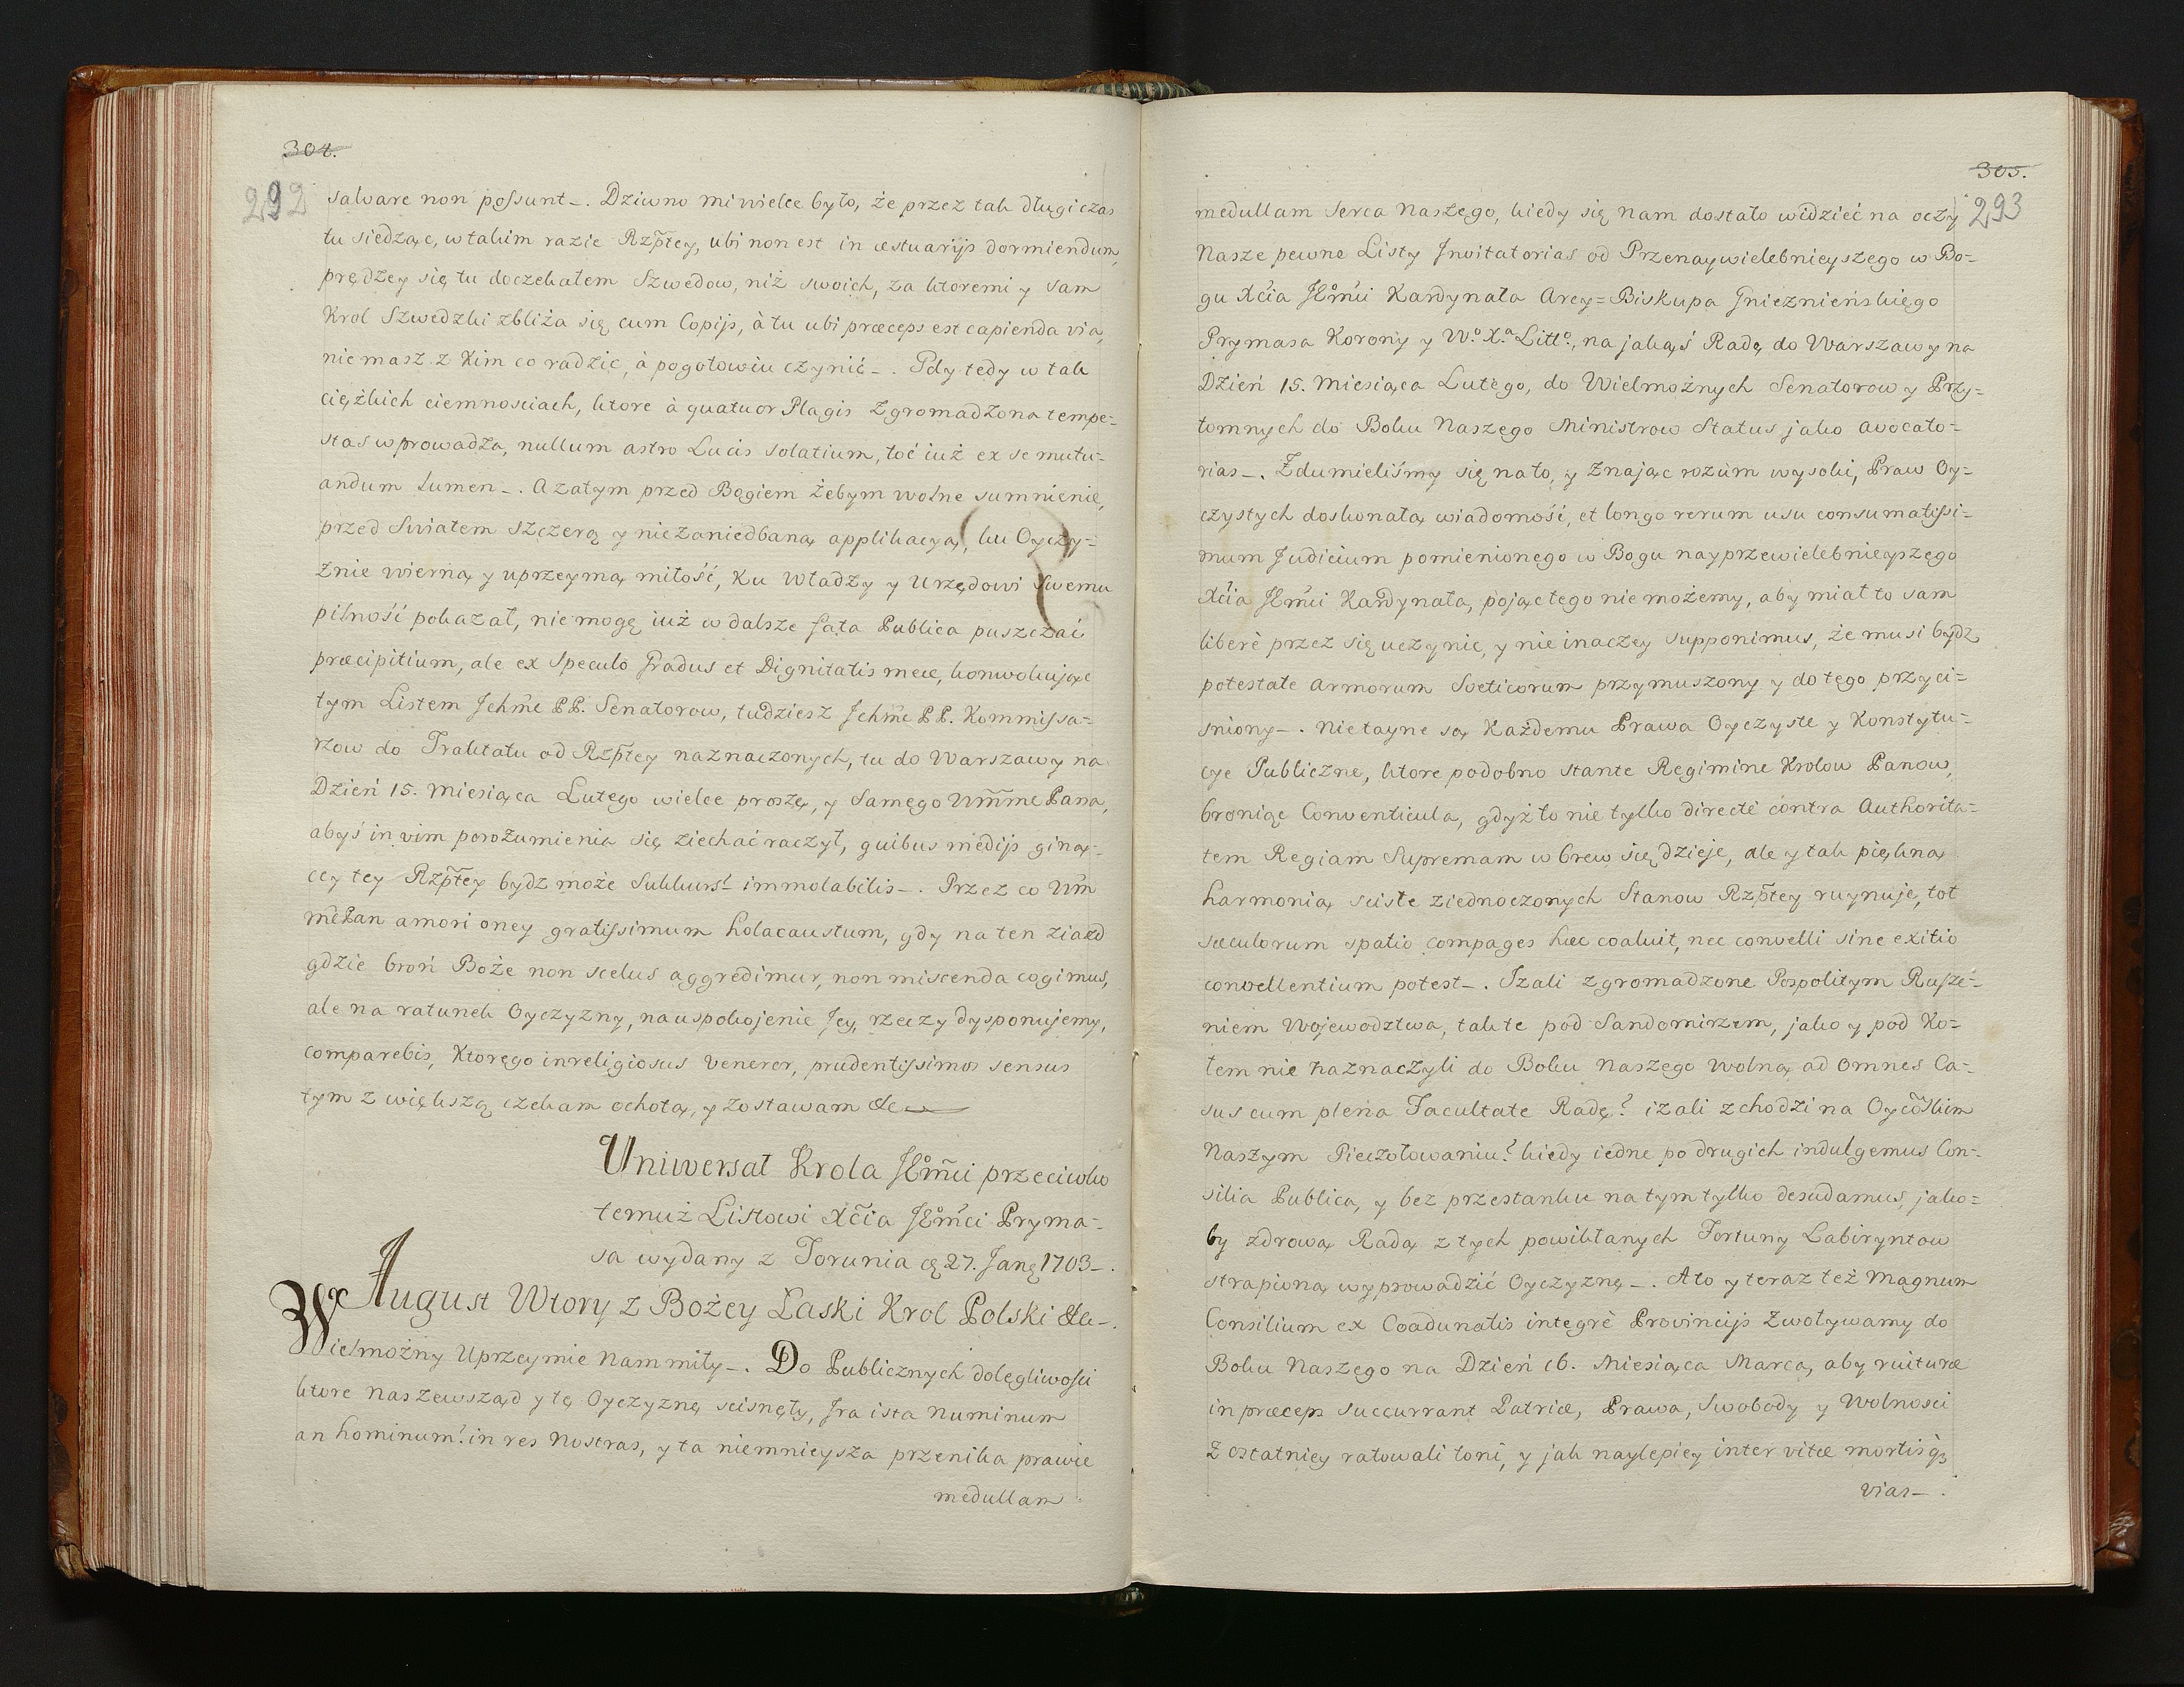 304.
292
salvare non possunt_. Dziwno mi wielce było, że przez tak długi czas
tu siedząc, w takim razie Rzptey, ubi non est in æstuarijs dormiendum,
prędzey się tu doczekałem Szwedow, niż swoich, za ktoremi y sam
Krol Szwedzki zbliża się cum Copijs, à tu ubi præceps est capienda via,
nie masz z Kim co radzic, à pogotowiu czynić_. Gdy tedy w tak
ciężkich ciemnosciach, ktore à quatuor Plagis zgromadzona tempe=
stas wprowadza, nullum astro Lucis solatium, toć iuż ex se mutu=
andum Lumen_. A zatym przed Bogiem żebym wolne sumnienie,
przed Swiatem szczerą y niezaniedbaną applikacyą, ku Oyczy=
znie wierną y uprzeymą miłość, Ku Władzy y Urzędowi Swemu
pilność pokazał, nie mogę iuż w dalsze fata Publica puszczać
præcipitium, ale ex Speculo Gradus et Dignitatis meæ, konwokując
tym Listem Jchme PP. Senatorow, tudziesz Jchme PP. Kommissa=
rzow do Traktatu od Rzptey naznaczonych, tu do Warszawy na
Dzień 15. Miesiąca Lutego wielce proszę, y Samego Wmme Pana,
abyś in vim porozumienia się ziechać raczył, quibus medijs giną=
cey tey Rzptey bydz może Sukkurs immolabilis_. Przez co Wm
mePan amori oney gratissimum holacaustum, gdy na ten ziazd
gdzie broń Boże non scelus aggredimur, non miscenda cogimus,
ale na ratunek Oyczyzny, na uspokojenie Jey, rzeczy dysponujemy,
comparebis, Ktorego inreligiosus venerer, prudentissimos sensus
tym z większą czekam ochotą, y zostawam &c
Uniwersał Krola JKmci przeciwko
temuż Listowi Xcia JEmci Pryma=
sa wydany z Torunia 27. Jan 1703_.
August Wtory z Bożey Łaski Krol Polski &c_.
Wielmożny Uprzeymie Nam miły_. Do Publicznych dolęgliwosci
ktore nas zewsząd y tę Oyczyznę scisnęły, Ira ista Numinum
an hominum? in res Nostras, y ta niemnieysza przenika prawie
medullam
305.
293
medullam Serca Naszego, kiedy się Nam dostało widzieć na oczy
Nasze pewne Listy Invitatorias od Przenaywielebnieyszego w Bo=
gu Xcia JEmci Kardynała Arcy=Biskupa Gnieznieńskiego
Prymasa Korony y Wo. Xa. Litto., na jakąś Radę do Warszawy na
Dzień 15. Miesiąca Lutego, do Wielmożnych Senatorow y Przy=
tomnych do Boku Naszego Ministrow Status jako avocato=
rias_. Zdumieliśmy się na to, y Znając rozum wysoki, Praw Oy=
czystych doskonałą wiadomość, et longo rerum usu consumatissi=
mum Judicium pomienionego w Bogu nayprzewielebnieyszego
Xcia JEmci Kardynała, pojąć tego nie możemy, aby miał to sam
liberè przez się uczynic, y nie inaczey supponimus, że musi bydz
potestate Armorum Sveticorum przymuszony y do tego przyci=
sniony_. Nie tayne są Każdemu Prawa Oyczyste y Konstytu=
cye Publiczne, ktore podobno stante Regimine Krolow Panow,
bronią Conventicula, gdyż to nie tylko directè contra Authorita=
tem Regiam Supremam w brew się dzieje, ale y tak piękną
harmonią sciste ziednoczonych Stanow Rzptey ruynuje, tot
sæculorum spatio compages hæc coaluit, nec convelli sine exitio
convellentium potest_. Izali zgromadzone Pospolitym Rusze=
niem Wojewodztwa, tak te pod Sandomirzem, jako y pod Ko=
łem nie naznaczyli do Boku Naszego Wolną ad omnes Ca=
sus cum plena Facultate Radę? izali zchodzi na Oycoskim
Naszym Pieczołowaniu? kiedy iedne po drugich indulgemus Con=
silia Publica, y bez przestanku na tym tylko desudamus, jako=
by zdrową Radą z tych powikłanych Fortuny Labiryntow
strapioną wyprowadzić Oyczyznę_. A to y teraz też Magnum
Consilium ex Coadunatis integrè Provincijs Zwoływamy do
Boku Naszego na Dzień 16. Miesiąca Marca, aby ruituræ
in præceps succurrant Patriæ, Prawa, Swobody y Wolnosci
z ostatniey ratowali toni, y jak naylepiey inter vitæ mortisq3
vias_.